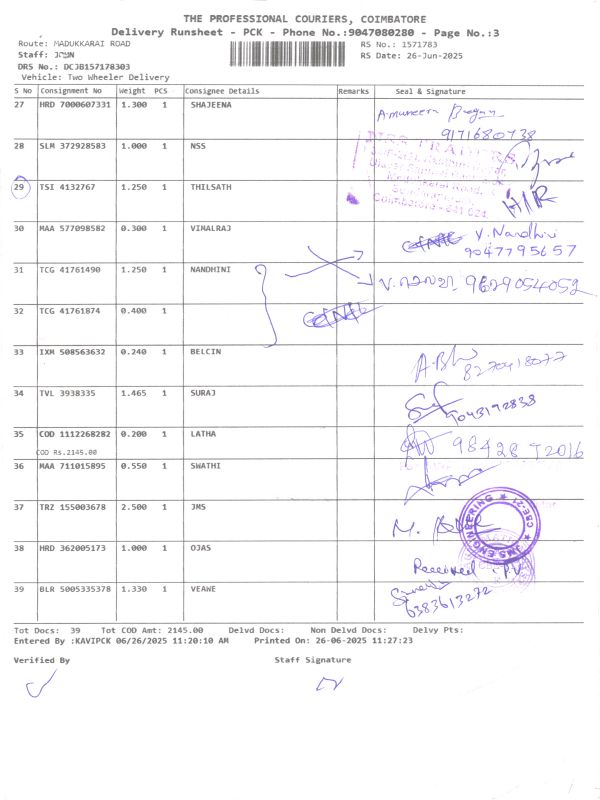 THE PROFESSIONAL COURIERS, COIMBATORE
Delivery Runsheet - PCK - Phone No.:9047080280 - Page No.:3
Route: MADUKKARAI ROAD
RS No.: 1571783
RS Date: 26-Jun-2025
DRS No.: DCJB157178303
Vehicle: Two Wheeler Delivery
S No Consignment No Weight PCS Consignee Details Remarks Seal & Signature
27 HRD 7000607331 1.300 1 SHAJEENA
9171680738
28 SLM 372928583 1.000 1 NSS
29 TSI 4132767 1.250 1 THILSATH
Coimbatore - 641 024
30 MAA 577098582 0.300 1 VIMALRAJ V. Nandhini
9047795657
31 TCG 41761490 1.250 1 NANDHINI 9629054052
32 TCG 41761874 0.400 1
33 IXM 508563632 0.240 1 BELCIN
8270418077
34 TVL 3938335 1.465 1 SURAJ
9043192838
35 COD 1112268282 0.200 1 LATHA 98428 72016
COD Rs.2145.00
36 MAA 711015895 0.550 1 SWATHI
37 TRZ 155003678 2.500 1 JMS
JMS ENGINEERING ★ CBE-21 ★
38 HRD 362005173 1.000 1 OJAS
Received
39 BLR 5005335378 1.330 1 VEANE
6383613272
Tot Docs: 39 Tot COD Amt: 2145.00 Delvd Docs: Non Delvd Docs: Delvy Pts:
Entered By :KAVIPCK 06/26/2025 11:20:10 AM Printed On: 26-06-2025 11:27:23
Verified By Staff Signature